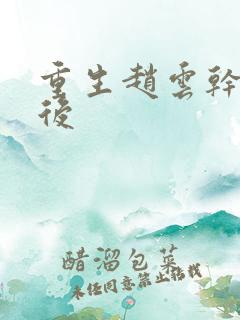 重生趙雲幹
後
醋溜包菜
未经同意禁止搭找